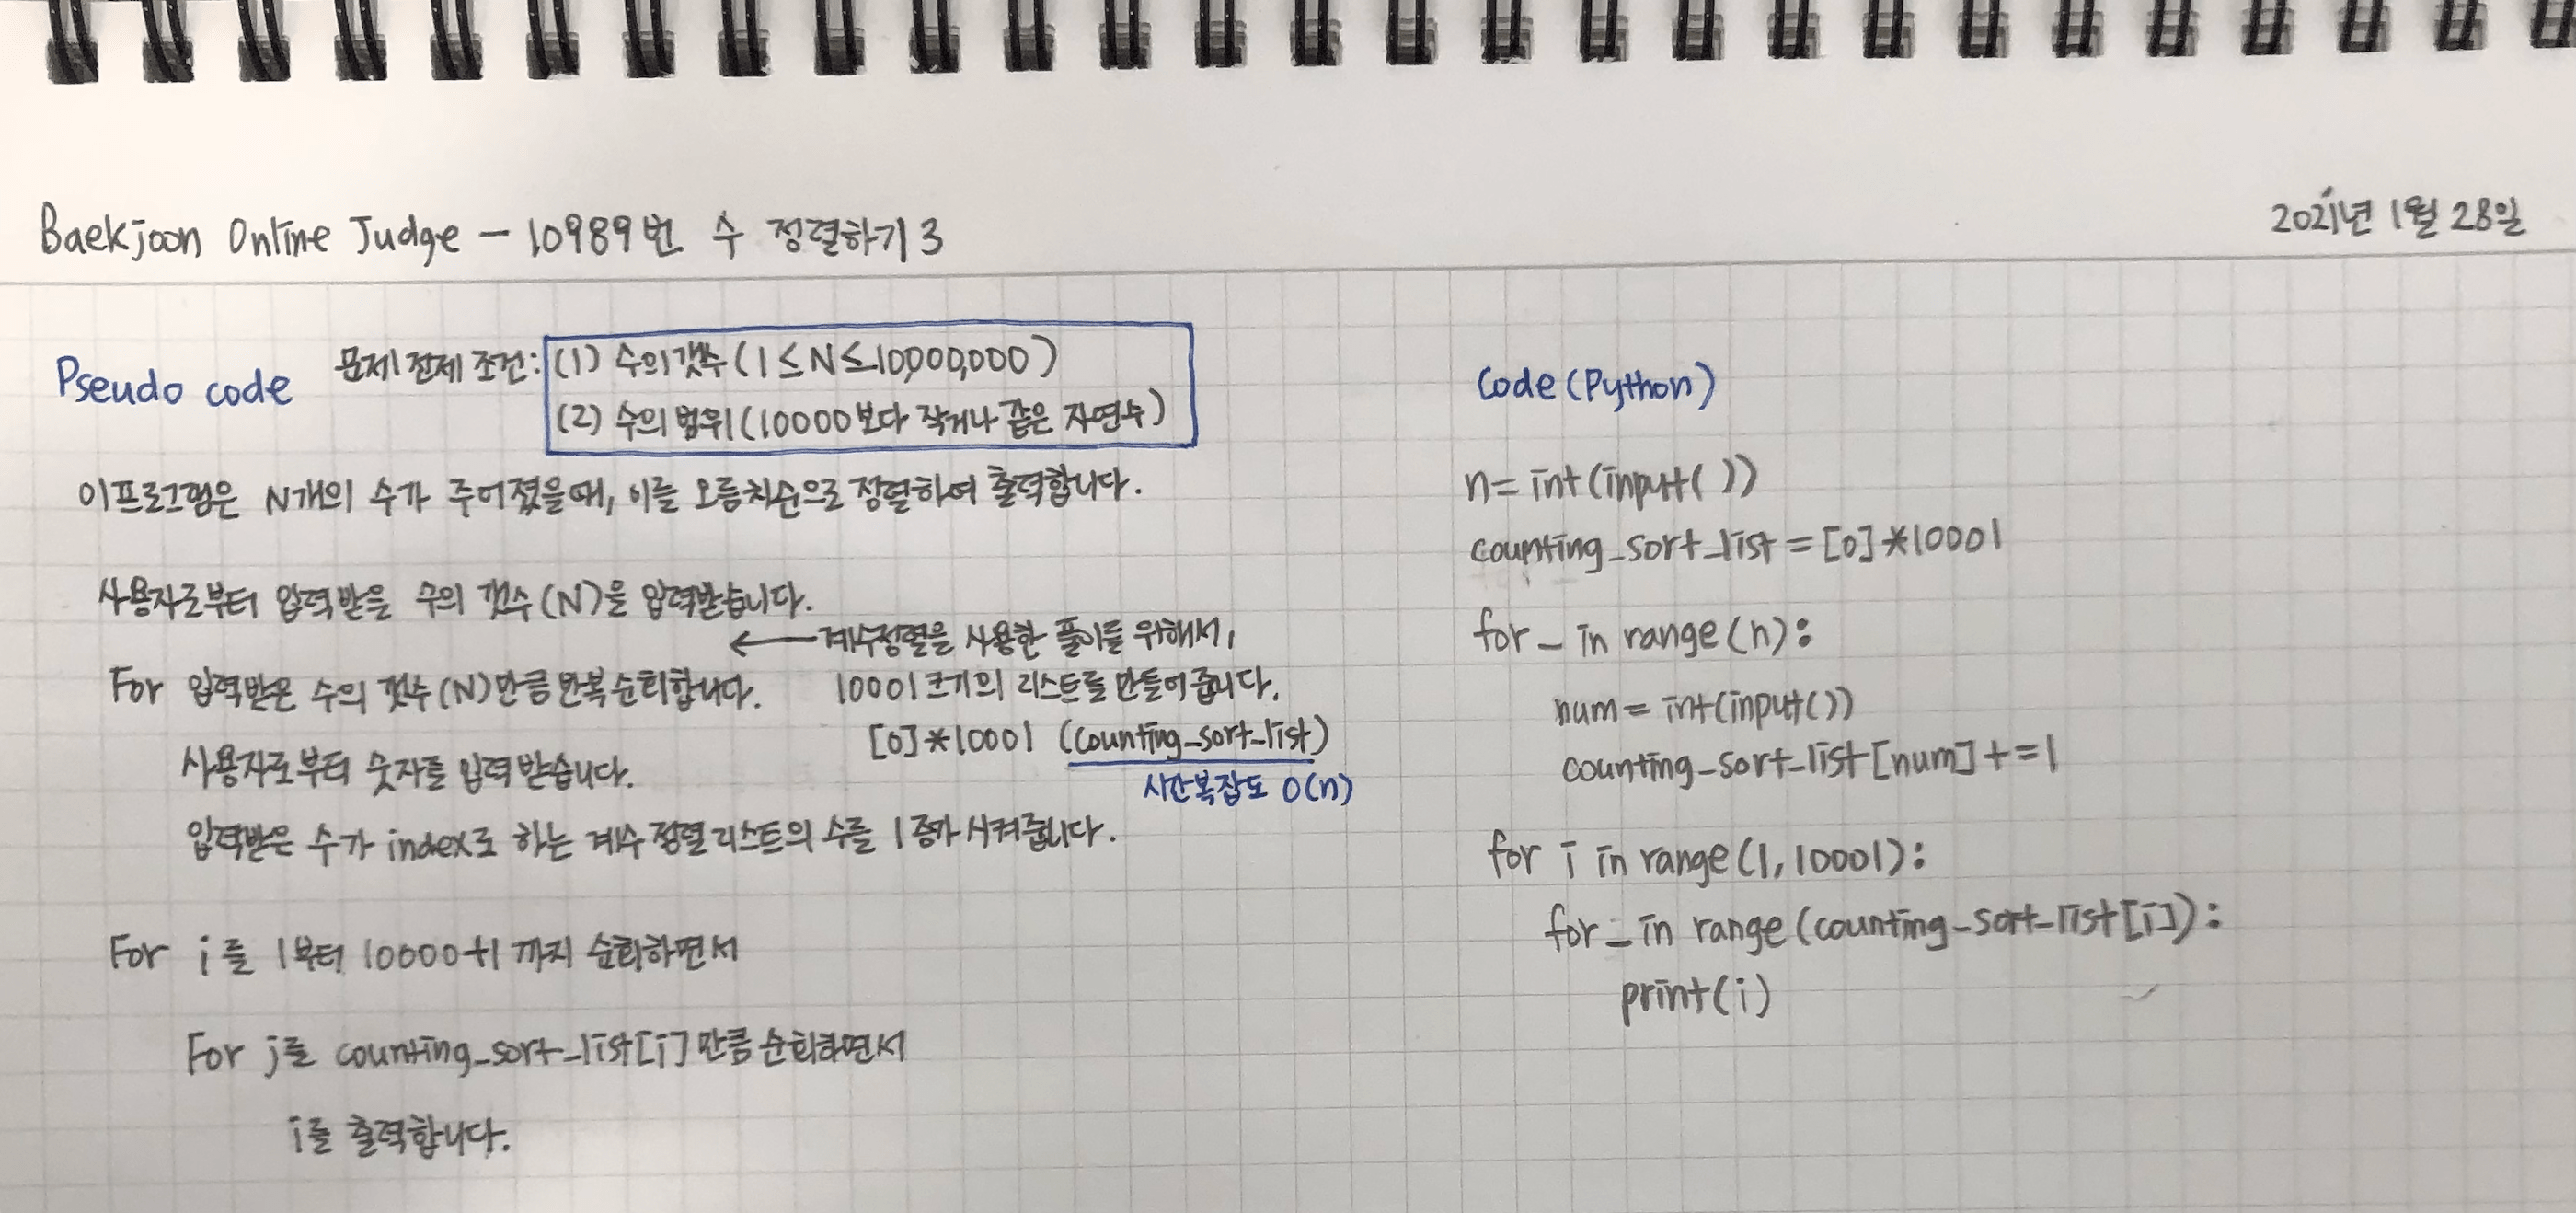 Baekjoon Online Judge - 10989번 수 정렬하기 3
2021년 1월 28일
Pseudo code
문제 전제 조건: (1) 수의 갯수 (1 ≤ N ≤ 10,000,000)
(2) 수의 범위 (10000보다 작거나 같은 자연수)
이 프로그램은 N개의 수가 주어졌을때, 이를 오름차순으로 정렬하여 출력합니다.
사용자로부터 입력받을 수의 갯수(N)을 입력받습니다.
← 계수정렬을 사용한 풀이를 위해서,
10001 크기의 리스트를 만들어 줍니다.
[0]*10001 (counting_sort_list)
시간복잡도 O(n)
For 입력받은 수의 갯수(N)만큼 반복 순회합니다.
사용자로부터 숫자를 입력 받습니다.
입력받은 수가 index로 하는 계수 정렬 리스트의 수를 1 증가 시켜줍니다.
For i를 1부터 10000+1 까지 순회하면서
For j를 counting_sort_list[i] 만큼 순회하면서
i를 출력합니다.
Code (Python)
n = int(input())
counting_sort_list = [0]*10001
for _ in range(n):
num = int(input())
counting_sort_list[num] += 1
for i in range(1, 10001):
for _ in range(counting_sort_list[i]):
print(i)